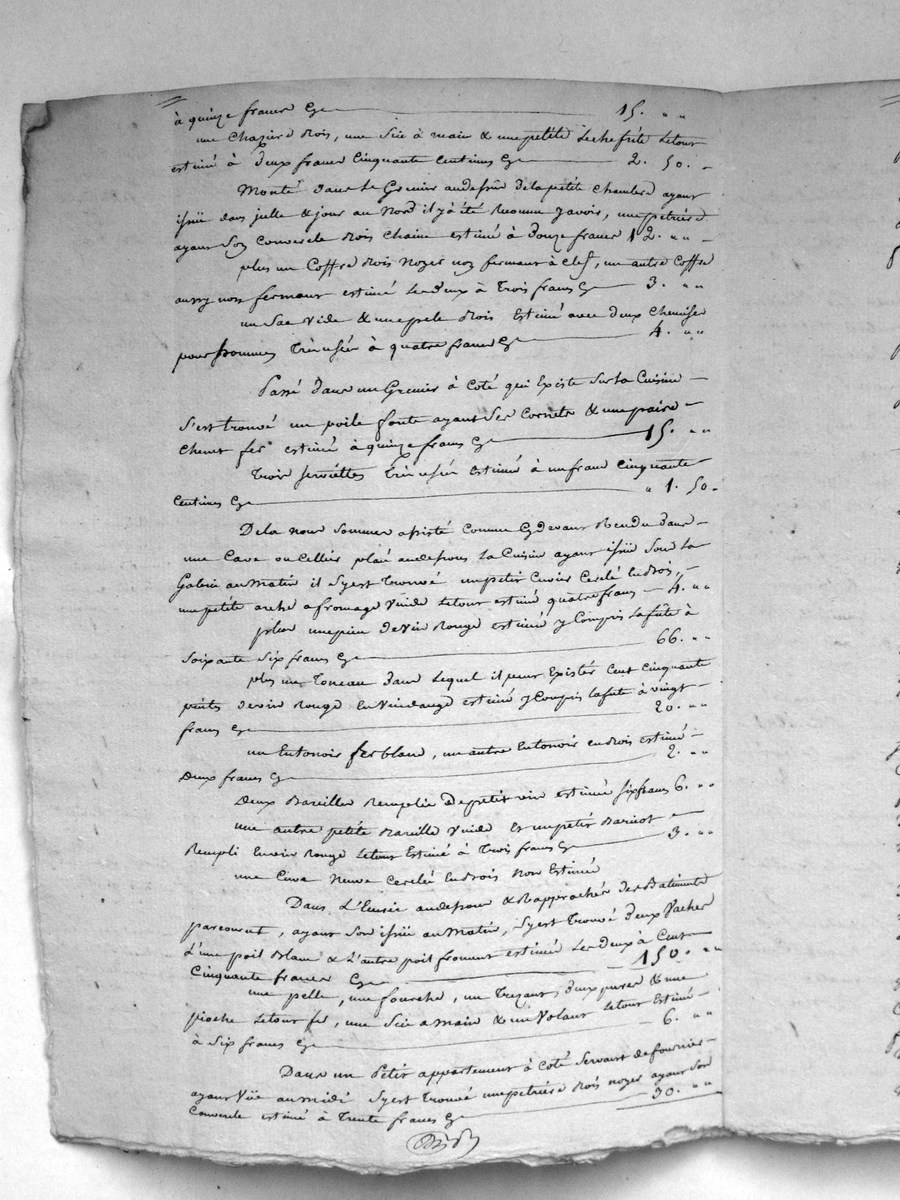 à quinze francs Cy 15. " "
une chasiere Bois, une Scie à main & une petite Lechefrite Letout
estimé à Deux francs Cinquante Centimes Cy 2. 50.
Monté Dans Le Grenier audessus dela petite Chambre ayant
issüe dans icelle & jour au Nord il y à été Reconnu y avoir, une petriere
ayant Son Couvercle Bois Chaine estimé à Douze francs 12. " "
plus un Coffre Bois Noyer non fermant à clef, un autre Coffre
aussy non fermant estimé Les deux à Trois francs Cy 3. " "
un Sac vide & une pele Bois Estimé avec deux Chemises
pour hommes Très usées à quatre francs Cy 4. " "
Passé Dans un Grenier à Coté qui Existe Sur la Cuisine
S'est trouvé un poile fonte ayant Ses Cornets & une paire
Chenet fer estimé à quinze francs Cy 15. " "
Trois serviettes Très usées Estimé à un franc Cinquante
Centimes Cy " 1. 50.
Dela nous Sommes assisté Comme Cy devant Rendu dans
une Cave ou Cellier placé audessous La Cuisine ayant issüe Sous La
Galerie au Matin il S'y est Trouvé un petit Cuvier Cerclé En Bois,
une petite arche a fromage vuide Letout estimé quatre francs 4. " "
plus une piece de vin Rouge estimé y Compris La futé à
Soixante Six francs Cy 66. " "
plus un Toneau Dans Lequel il peut Exister Cent Cinquante
pintes de vin Rouge En vendange estimé y Compris La fut à vingt
francs Cy 20. " "
un Entonoir fer blanc, un autre Entonoir en Bois estimé
Deux francs Cy 2. " "
Deux Bareilles Remplie De petit vin estimé Six francs 6. " "
une autre petite Bareille Vuide Et un petit Baricot
Rempli En vin Rouge Letout Estimé à Trois francs Cy 3. " "
une Cuve Neuve Cerclé En Bois Non Estimé
Dans L'Ecurie audessous & Rapprochée des Batiments
parcourut, ayant Son issüe au Matin, S'y est Trouvé Deux Vaches
L'une poil Blanc & L'autre poil froment estimé Les Deux à Cent
Cinquante francs Cy 150. " "
une pelle, une fourche, un Trezant, Deux & une
pioche Letout fer, une Scie a Main & un Volant Letout Estimé
à Six francs Cy 6. " "
Dans un Petit appartement à Coté Servant de fournier
ayant Vüe au midi S'y est Trouvé une petriere Bois noyer ayant Son
Couvercle estimé à Trente francs Cy 30. " "